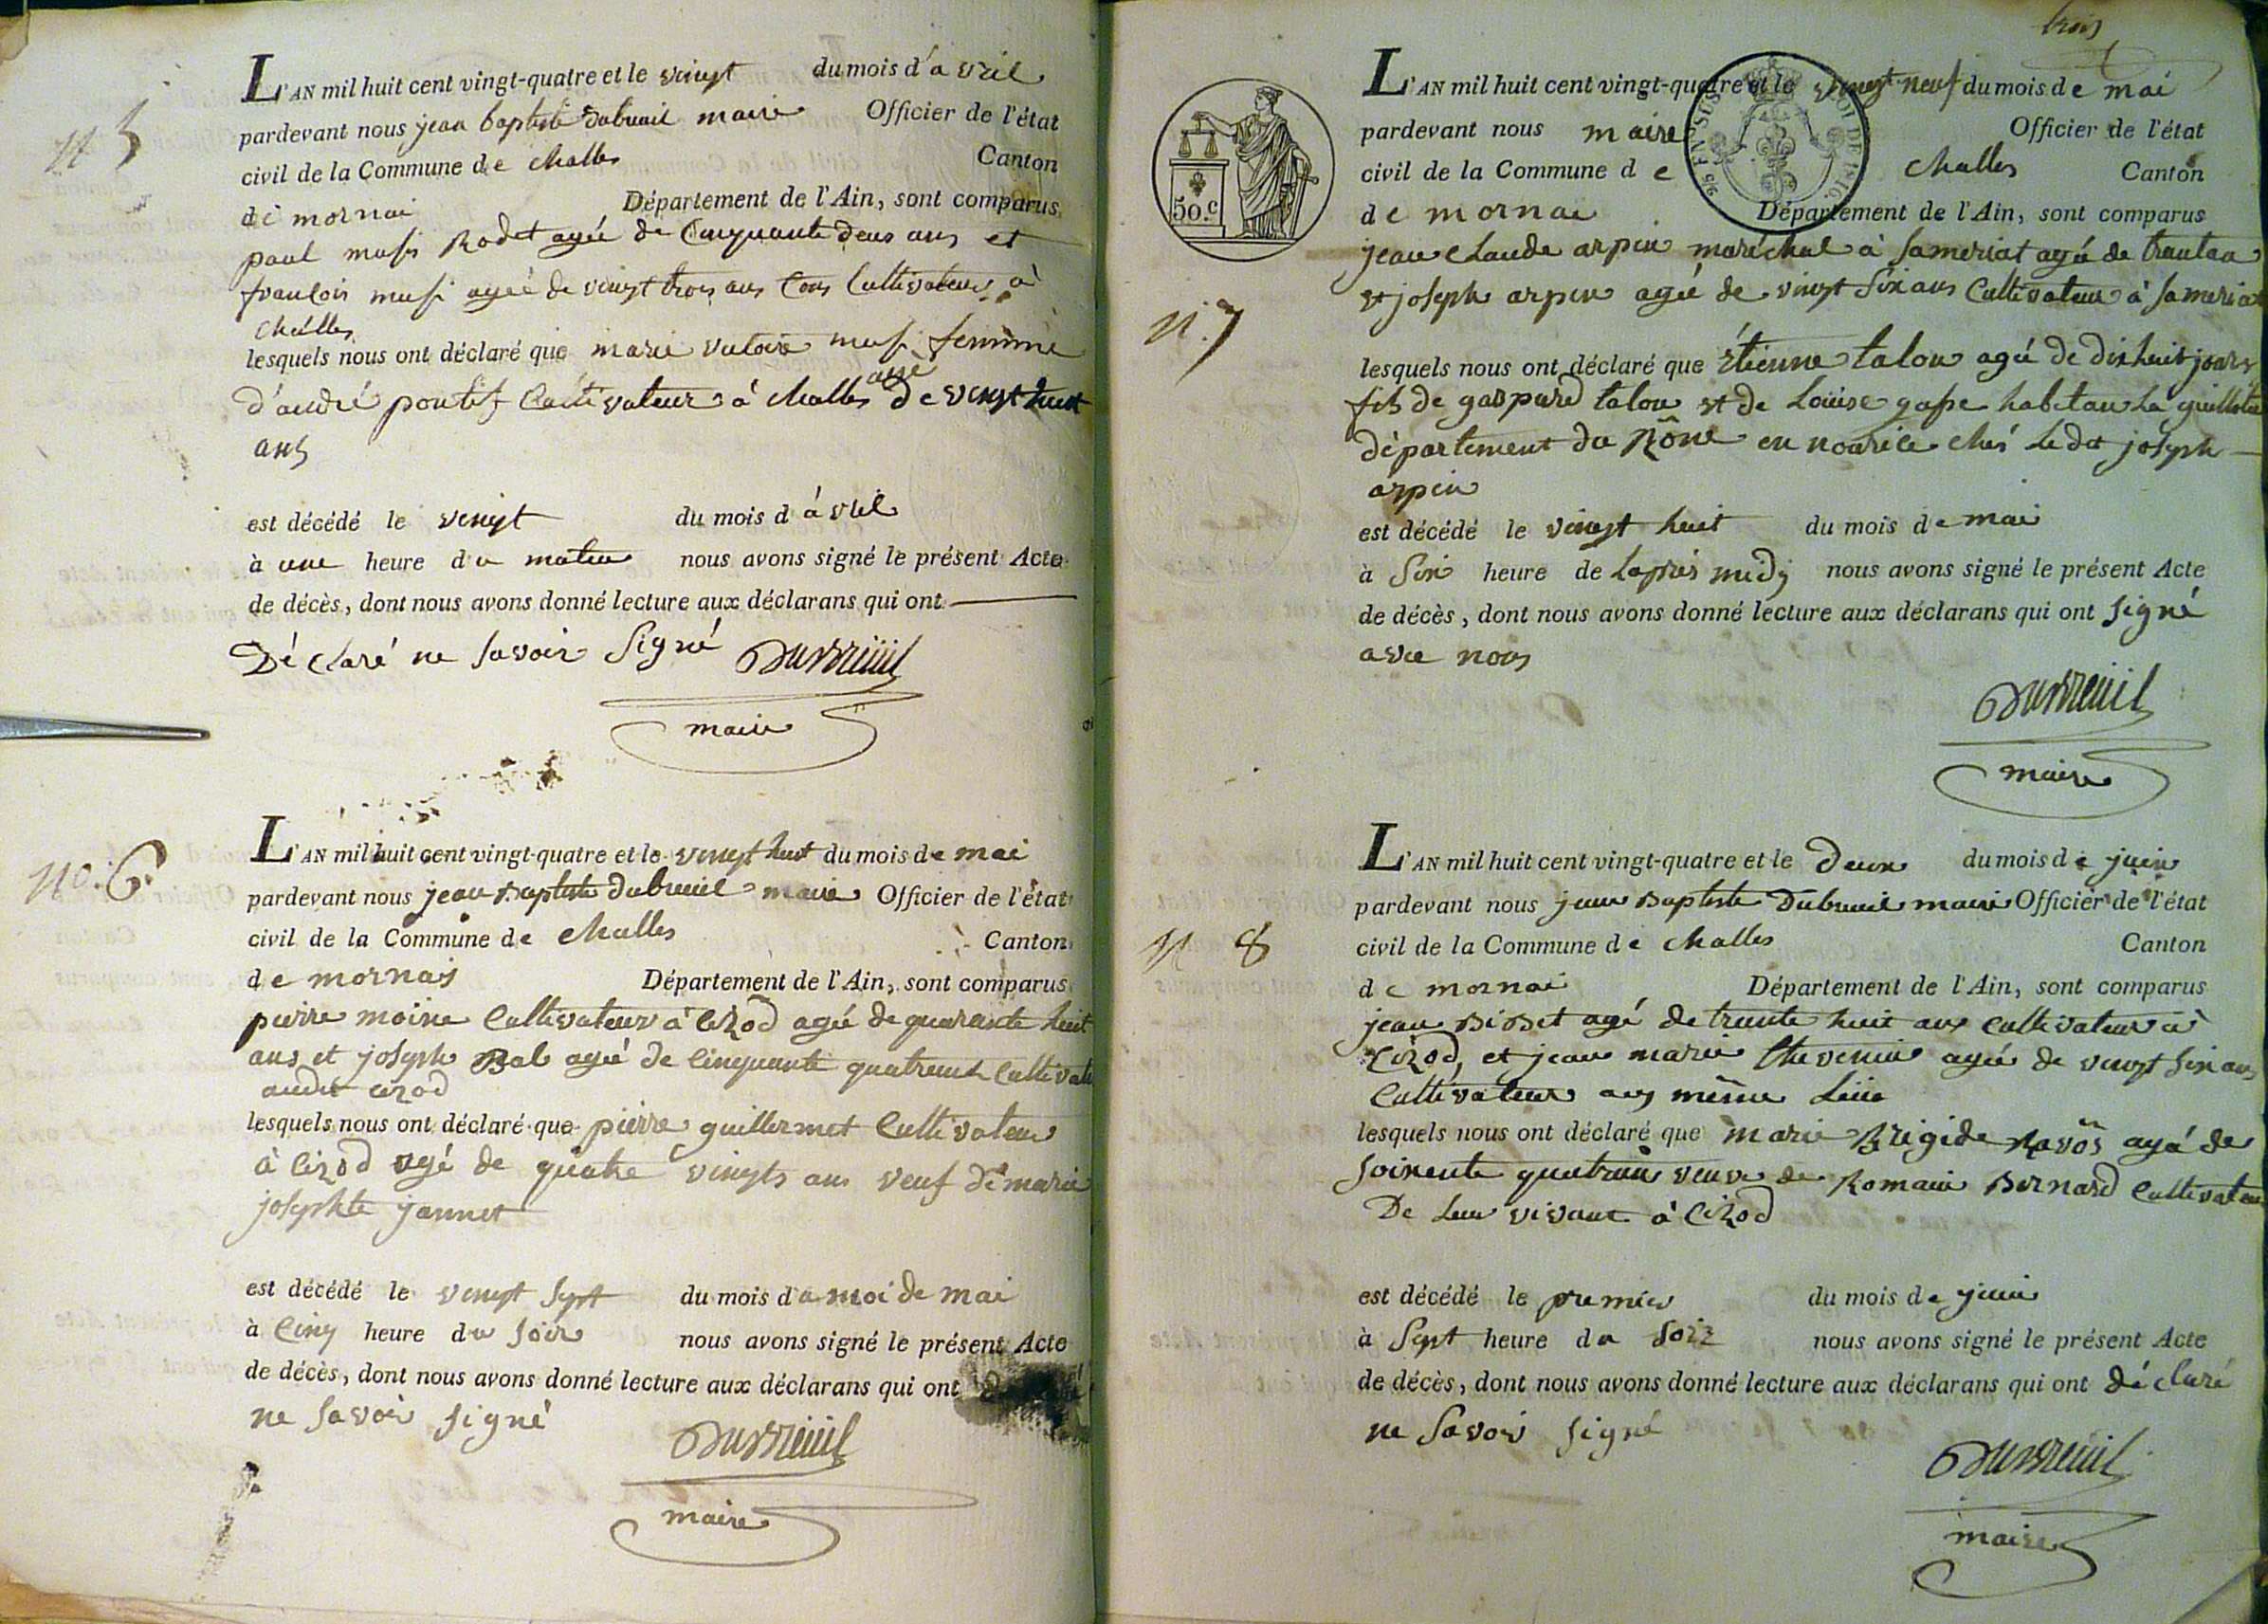 N 5
L'AN mil huit cent vingt-quatre et le vingt du mois d'avril
pardevant nous jean baptiste dubreuil maire Officier de l'état
civil de la Commune de challes Canton
de mornai Département de l'Ain, sont comparus
paul musi Rodet agée de Cinquante deus ans et
francois musi agée de vingt trois ans tous Cultivateurs à
challes
lesquels nous ont déclaré que marie victoire musi femme
d'andré pontif Cultivateur à challes agée de vingt huit
ans
est décédé le vingt du mois d'avril
à une heure du matin nous avons signé le présent Acte
de décès, dont nous avons donné lecture aux déclarans qui ont
Déclaré ne savoir signé Dubreuil
maire
No. 6.
L'AN mil huit cent vingt-quatre et le vingt huit du mois de mai
pardevant nous jean Baptiste dubreuil maire Officier de l'état
civil de la Commune de challes Canton
de mornay Département de l'Ain, sont comparus
pierre moine Cultivateur à Cizod agée de quarante huit
ans et joseph Bal agée de Cinquante quatre ans Cultivat
audit cizod
lesquels nous ont déclaré que pierre guillermet Cultivateur
à Cizod agé de quatre vingts ans veuf de marie
josephte jannet
est décédé le vingt sept du mois du moi de mai
à Cinq heure du soir nous avons signé le présent Acte
de décès, dont nous avons donné lecture aux déclarans qui ont
ne savoir signé
Dubreuil
maire
trois
50.c
L'AN mil huit cent vingt-quatre et le vingt-neuf du mois de mai
pardevant nous maire Officier de l'état
civil de la Commune de challes Canton
de mornai Département de l'Ain, sont comparus
jean claude arpin maréchal à sameriat agé de trentan
et joseph arpin agée de vingt six ans Cultivateur à sameriat
N. 7
lesquels nous ont déclaré que étienne talon agée de dix huit jours
fils de gaspard talon et de Louise gasse habitan La guillotie
département du Rône en nourice chés Ledit joseph
arpin
est décédé le vingt huit du mois de mai
à six heure de Laprés midy nous avons signé le présent Acte
de décès, dont nous avons donné lecture aux déclarans qui ont signé
avec nous
Dubreuil
maire
L'AN mil huit cent vingt-quatre et le deux du mois de juin
pardevant nous jean Baptiste Dubreuil maire Officier de l'état
N 8
civil de la Commune de challes Canton
de mornai Département de l'Ain, sont comparus
jean Bibet agé de trente huit ans cultivateur à
Cizod, et jean marie thevenin agée de vingt six ans
Cultivateur au même Liiu
lesquels nous ont déclaré que marie Brigide Ravõs agé de
soixente quatrans veuve de Romain Bernard Cultivateur
De Leur vivant à Cizod
est décédé le premier du mois de juin
à sept heure du soir nous avons signé le présent Acte
de décès, dont nous avons donné lecture aux déclarans qui ont déclaré
ne savoir signé
Dubreuil
maire